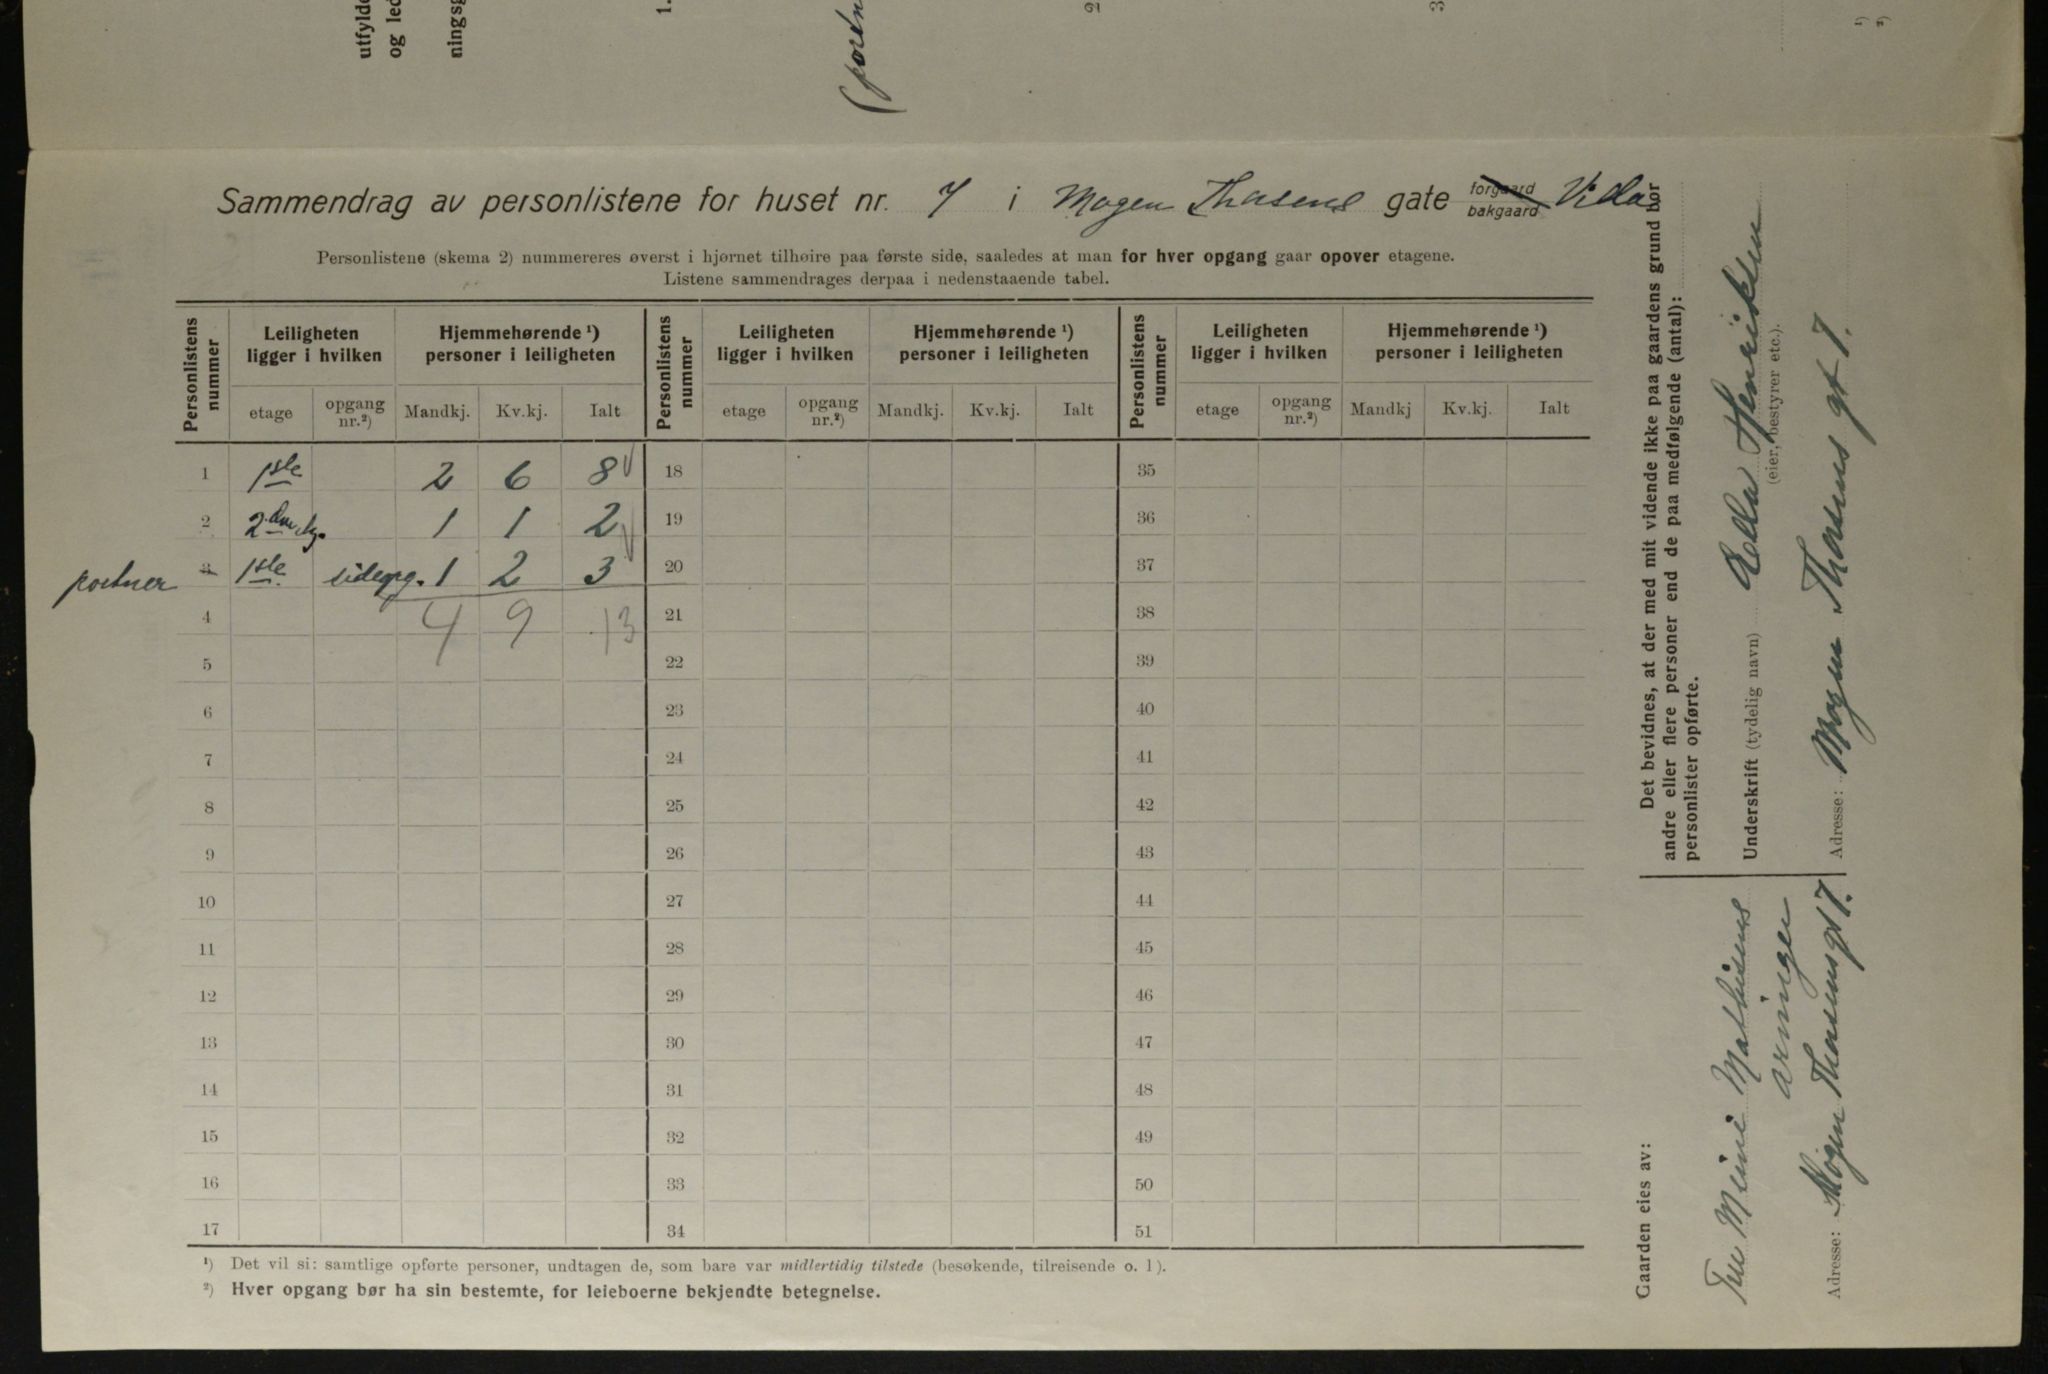 utfylde
og led
ningsg
1.
(portn
2
3
¹)
²)
Sammendrag av personlistene for huset nr. 7 i Mogen Thorsens gate forgaard bakgaard Villa
Personlistene (skema 2) nummereres øverst i hjørnet tilhøire paa første side, saaledes at man for hver opgang gaar opover etagene.
Listene sammendrages derpaa i nedenstaaende tabel.
Personlistens nummer | Leiligheten ligger i hvilken | Hjemmehørende ¹) personer i leiligheten | Personlistens nummer | Leiligheten ligger i hvilken | Hjemmehørende ¹) personer i leiligheten | Personlistens nummer | Leiligheten ligger i hvilken | Hjemmehørende ¹) personer i leiligheten
etage | opgang nr.²) | Mandkj. | Kv.kj. | Ialt | etage | opgang nr.²) | Mandkj. | Kv.kj. | Ialt | etage | opgang nr.²) | Mandkj | Kv.kj. | Ialt
1 1ste 2 6 8 18 35
2 2den 1 1 2 19 36
portner 3 1ste sideopg. 1 2 3 20 37
4 4 9 13 21 38
5 22 39
6 23 40
7 24 41
8 25 42
9 26 43
10 27 44
11 28 45
12 29 46
13 30 47
14 31 48
15 32 49
16 33 50
17 34 51
¹) Det vil si: samtlige opførte personer, undtagen de, som bare var midlertidig tilstede (besøkende, tilreisende o. l).
²) Hver opgang bør ha sin bestemte, for leieboerne bekjendte betegnelse.
Det bevidnes, at der med mit vidende ikke paa gaardens grund bor
andre eller flere personer end de paa medfølgende (antal):
personlister opførte.
Underskrift (tydelig navn) Henriksen
(eier, bestyrer etc.).
Adresse: Mogen Thorsens gt 7.
Gaarden eies av:
Fru Mimi Mathisens
arvinger
Adresse: Mogen Thorsens gt 7.